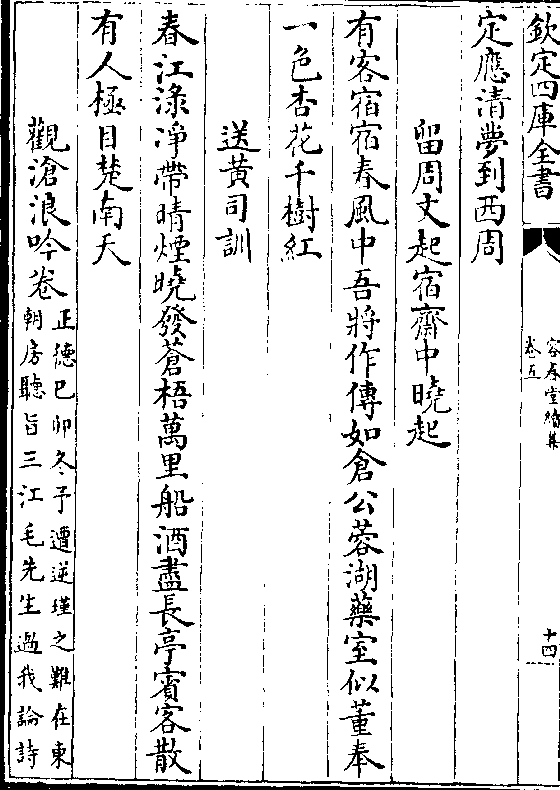 欽定四庫全書
容春堂續集
卷五
十四
定應清夢到西周
留周文起宿齋中曉起
有客宿宿春風中吾將作傳如倉公蓉湖藥室似董奉
一色杏花千樹紅
送黃司訓
春江淥凈帶晴煙曉發蒼梧萬里船酒盡長亭賓客散
有人極目楚南天
觀滄浪吟卷
正德巳卯冬予遭逆瑾之難在東
朝房聽旨三江毛先生過我論詩